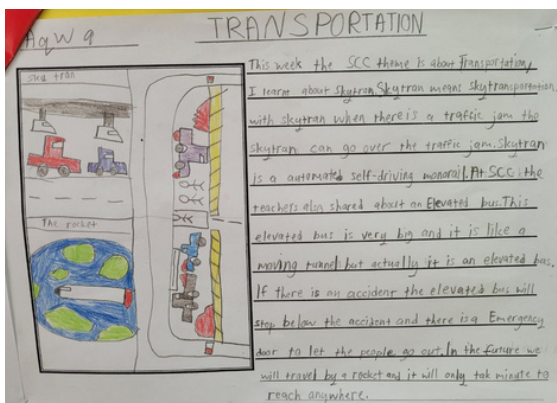 AqW 9
TRANSPORTATION
sky tran
The rocket
This week the SCC theme is about Transportation,
I learnt about skytran. Skytran means skytransportation
with skytran when there is a traffic jam the
skytran can go over the traffic jam. skytran
is a automated self-driving monorail. At SCC the
teachers also shared about an Elevated bus. This
elevated bus is very big and it is like a
moving tunnel but actually it is an elevated bus.
If there is an accident the elevated bus will
stop below the accident and there is a Emergency
door to let the people go out. In the future we
will travel by a rocket and it will only tak minute to
reach anywhere.